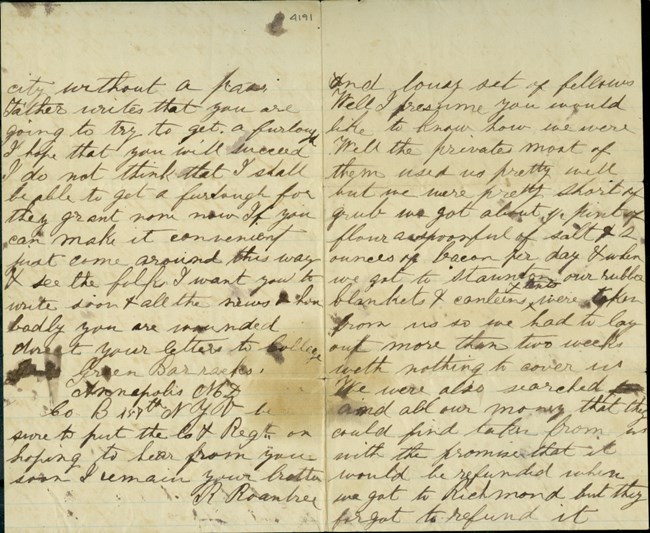 4191
city without a pass
Father writes that you are
going to try to get a furlough
I hope that you will succeed
I do not think that I shall
be able to get a furlough for
they grant none now If you
can make it convenient
just come around this way
& see the folks I want you to
write soon & all the news & how
badly you are wounded
direct your letters to College
Green Barracks,
Annapolis Md
Co B N Y V be
sure to put the Co & Regth on
hoping to hear from you
soon I remain your brother
R Roantree
and lousy set of fellows
Well I presume you would
like to know how we were
Well the privates most of
them used us pretty well
but we were pretty short of
grub we got about pint of
flour a spoonful of salt & 2
ounces of bacon per day & when
we got to staunton our rubber
blankets & canteens were taken
from us so we had to lay
out more than two weeks
with nothing to cover us
We were also searched
and all our money that they
could find taken from us
with the promise that it
would be refunded when
we got to Richmond but they
forgot to refund it